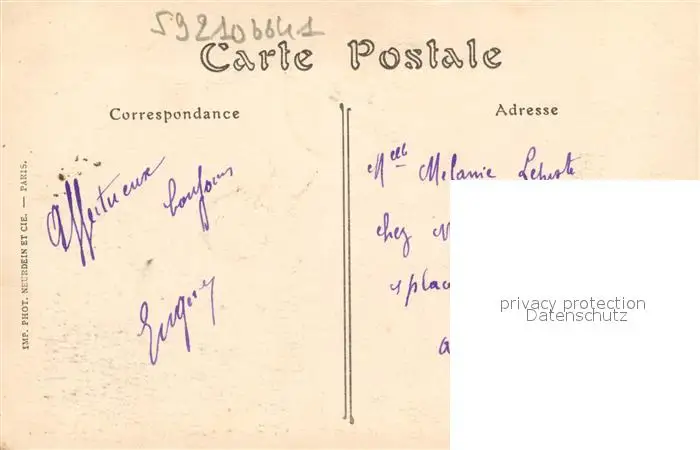 592106641
Carte Postale
Correspondance
Adresse
IMP. PHOT. NEURDEIN ET CIE. — PARIS.
Affectueux bonjour
Melle Melanie
chez
place
privacy protection
Datenschutz